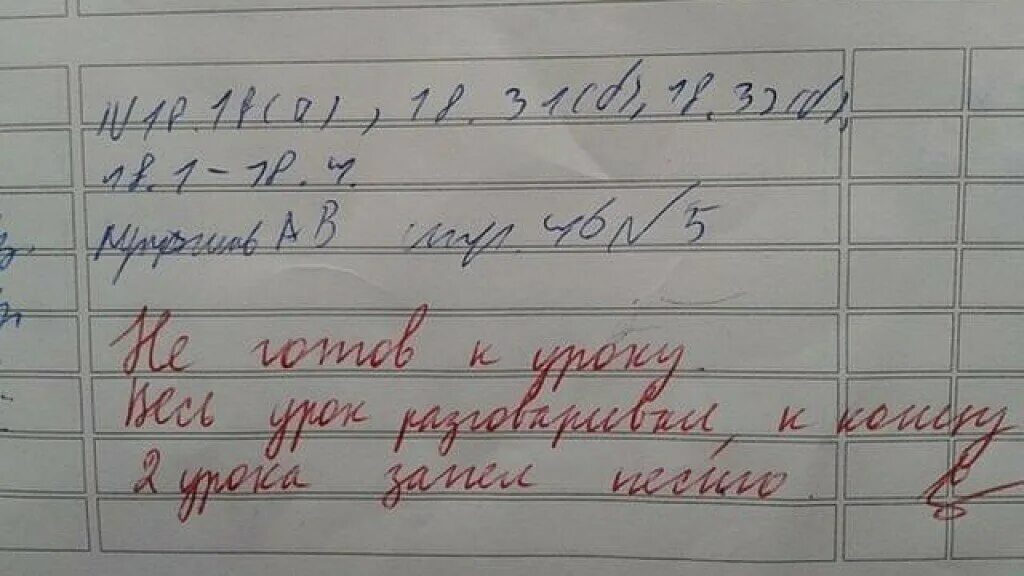 N18.18(а), 18.31(б), 18.32(б),
18.1-18.4.
А В стр. 46 №5
Не готов к уроку.
Весь урок разговаривал, к концу
2 урока запел песню.